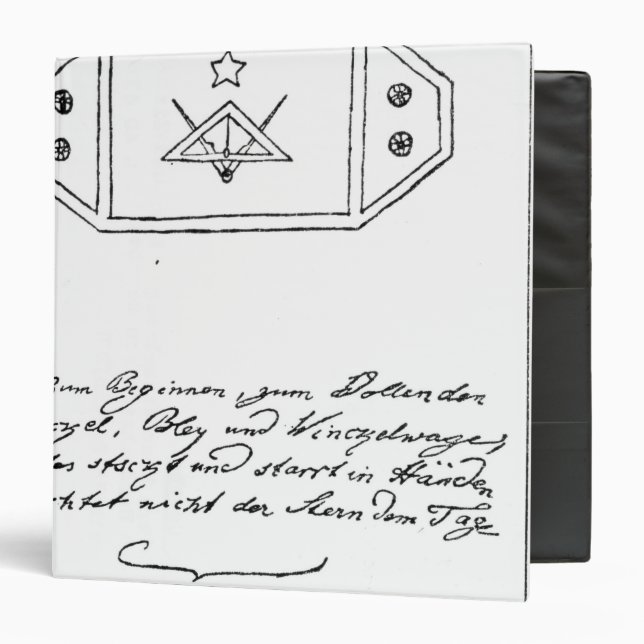 zum Beginnen, zum Vollenden
ckzel, Bley und Winckzelwage,
les stockzt und starrt in Händen
chtet nicht der Stern dem Tage